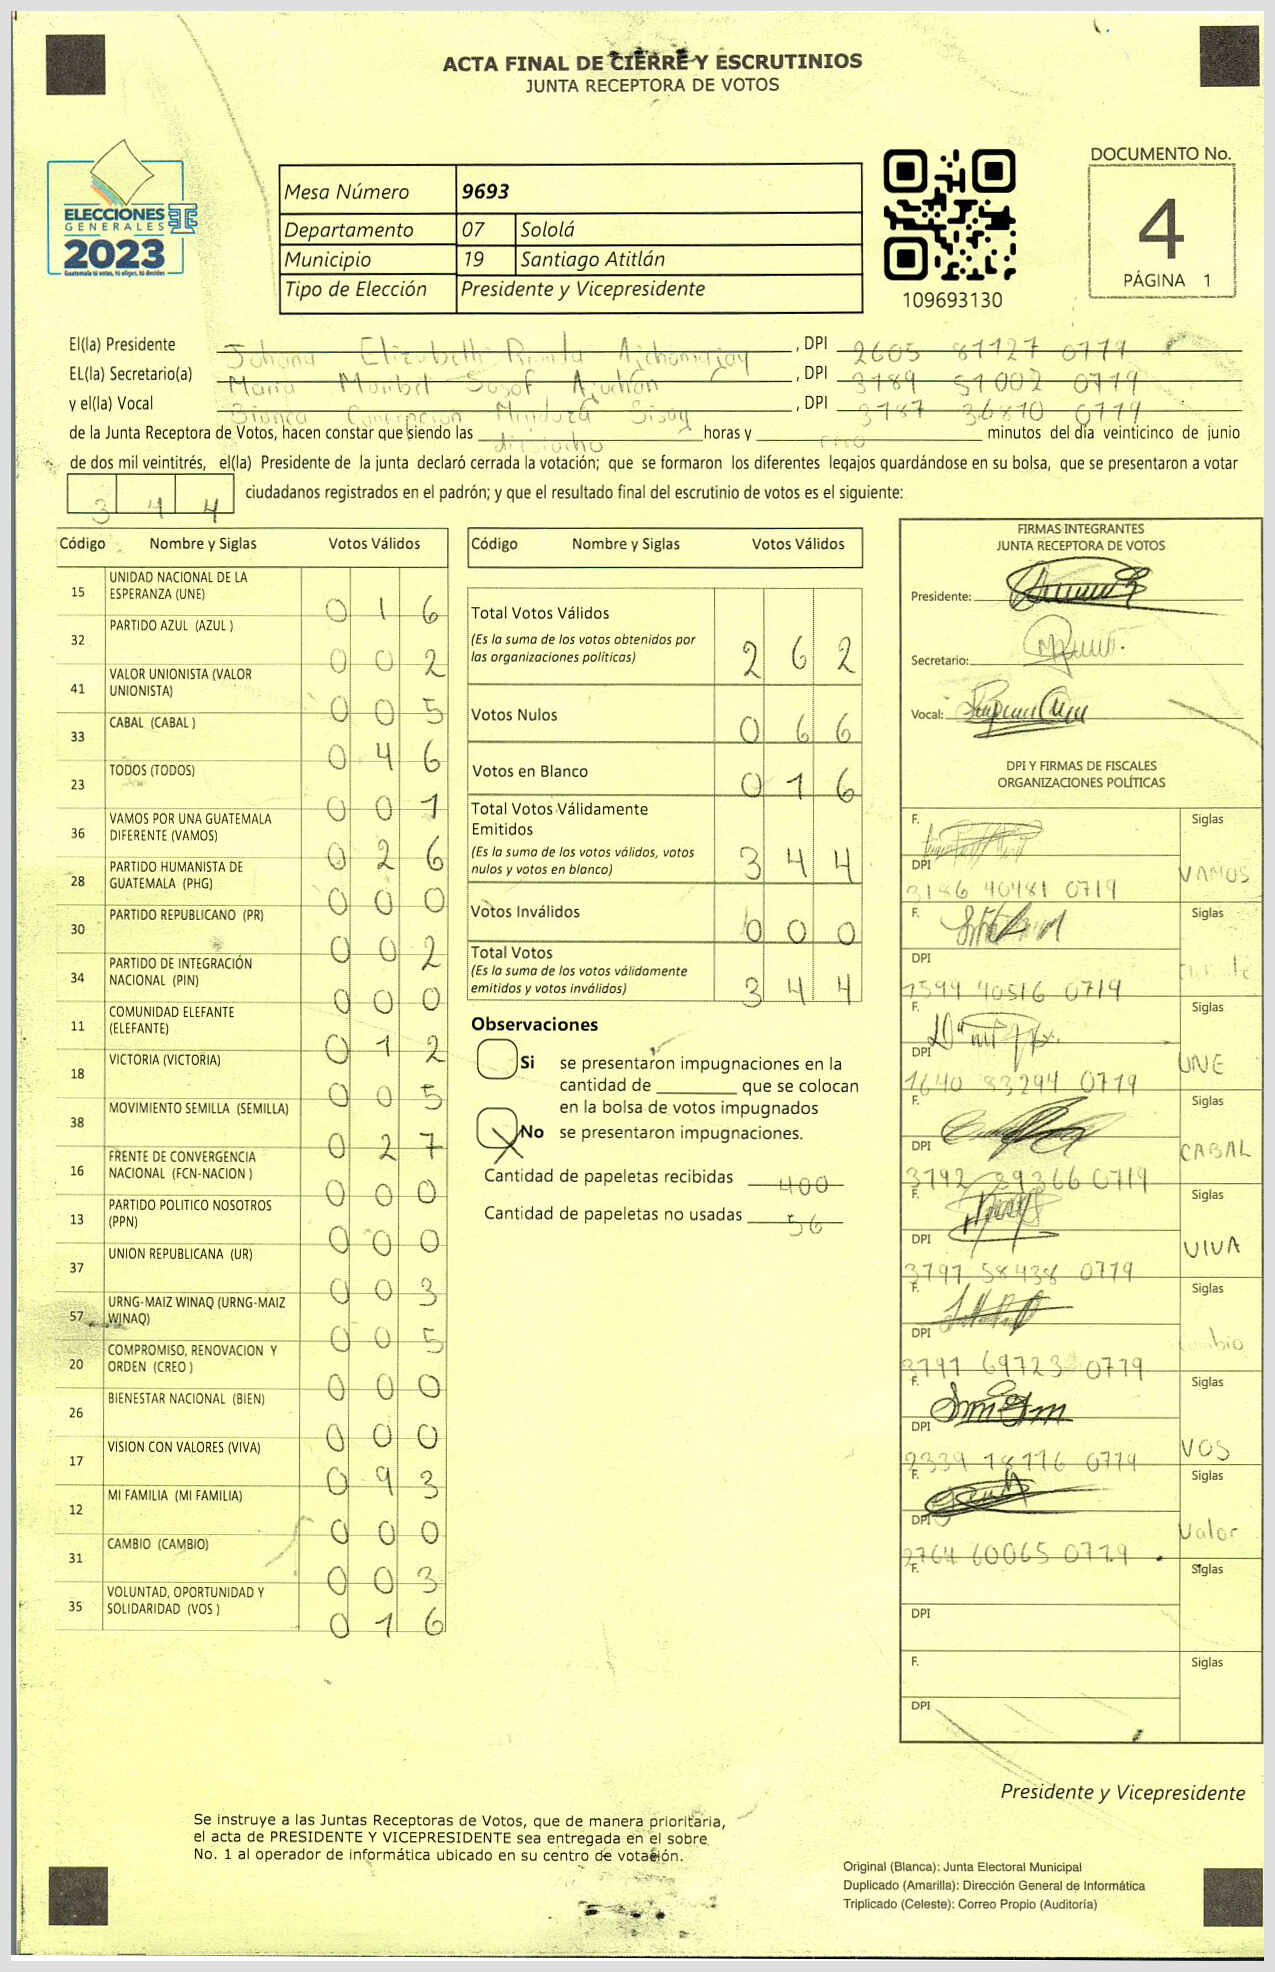 ACTA FINAL DE CIERRE Y ESCRUTINIOS
JUNTA RECEPTORA DE VOTOS
ELECCIONES
GENERALES
2023
Guatemala tú votas, tú eliges, tú decides
Mesa Número 9693
Departamento 07 Sololá
Municipio 19 Santiago Atitlán
Tipo de Elección Presidente y Vicepresidente
109693130
DOCUMENTO No.
4
PÁGINA 1
El(la) Presidente Johana Elizabeth , DPI 2605 87727 0719
EL(la) Secretario(a) Maria Maribel , DPI 3189 51002 0719
y el(la) Vocal Bianca Concepcion Mendoza Sisay , DPI 3787 36810 0719
de la Junta Receptora de Votos, hacen constar que siendo las dieciocho horas y cero minutos del día veinticinco de junio
de dos mil veintitrés, el(la) Presidente de la junta declaró cerrada la votación; que se formaron los diferentes legajos guardándose en su bolsa, que se presentaron a votar
3 4 4 ciudadanos registrados en el padrón; y que el resultado final del escrutinio de votos es el siguiente:
Código Nombre y Siglas Votos Válidos
15 UNIDAD NACIONAL DE LA ESPERANZA (UNE) 0 1 6
32 PARTIDO AZUL (AZUL ) 0 0 2
41 VALOR UNIONISTA (VALOR UNIONISTA) 0 0 5
33 CABAL (CABAL ) 0 4 6
23 TODOS (TODOS) 0 0 1
36 VAMOS POR UNA GUATEMALA DIFERENTE (VAMOS) 0 2 6
28 PARTIDO HUMANISTA DE GUATEMALA (PHG) 0 0 0
30 PARTIDO REPUBLICANO (PR) 0 0 2
34 PARTIDO DE INTEGRACIÓN NACIONAL (PIN) 0 0 0
11 COMUNIDAD ELEFANTE (ELEFANTE) 0 1 2
18 VICTORIA (VICTORIA) 0 0 5
38 MOVIMIENTO SEMILLA (SEMILLA) 0 2 7
16 FRENTE DE CONVERGENCIA NACIONAL (FCN-NACION ) 0 0 0
13 PARTIDO POLITICO NOSOTROS (PPN) 0 0 0
37 UNION REPUBLICANA (UR) 0 0 3
57 URNG-MAIZ WINAQ (URNG-MAIZ WINAQ) 0 0 5
20 COMPROMISO, RENOVACION Y ORDEN (CREO ) 0 0 0
26 BIENESTAR NACIONAL (BIEN) 0 0 0
17 VISION CON VALORES (VIVA) 0 9 3
12 MI FAMILIA (MI FAMILIA) 0 0 0
31 CAMBIO (CAMBIO) 0 0 3
35 VOLUNTAD, OPORTUNIDAD Y SOLIDARIDAD (VOS ) 0 1 6
Código Nombre y Siglas Votos Válidos
Total Votos Válidos 2 6 2
(Es la suma de los votos obtenidos por
las organizaciones políticas)
Votos Nulos 0 6 6
Votos en Blanco 0 1 6
Total Votos Válidamente
Emitidos 3 4 4
(Es la suma de los votos válidos, votos
nulos y votos en blanco)
Votos Inválidos 0 0 0
Total Votos 3 4 4
(Es la suma de los votos válidamente
emitidos y votos inválidos)
Observaciones
Si se presentaron impugnaciones en la
cantidad de ________ que se colocan
en la bolsa de votos impugnados
No se presentaron impugnaciones.
Cantidad de papeletas recibidas 400
Cantidad de papeletas no usadas 56
FIRMAS INTEGRANTES
JUNTA RECEPTORA DE VOTOS
Presidente:
Secretario:
Vocal:
DPI Y FIRMAS DE FISCALES
ORGANIZACIONES POLÍTICAS
F. Siglas
DPI VAMOS
3186 40481 0719
F. Siglas
DPI
1599 40516 0719
F. Siglas
DPI UNE
1640 83294 0719
F. Siglas
DPI CABAL
3792 29366 0719
F. Siglas
DPI VIVA
3797 58438 0719
F. Siglas
DPI Cambio
3797 69723 0719
F. Siglas
DPI VOS
2339 18776 0719
F. Siglas
DPI Valor
2764 60065 0719
F. Siglas
DPI
F. Siglas
DPI
Presidente y Vicepresidente
Se instruye a las Juntas Receptoras de Votos, que de manera prioritaria,
el acta de PRESIDENTE Y VICEPRESIDENTE sea entregada en el sobre
No. 1 al operador de informática ubicado en su centro de votación.
Original (Blanca): Junta Electoral Municipal
Duplicado (Amarilla): Dirección General de Informática
Triplicado (Celeste): Correo Propio (Auditoría)